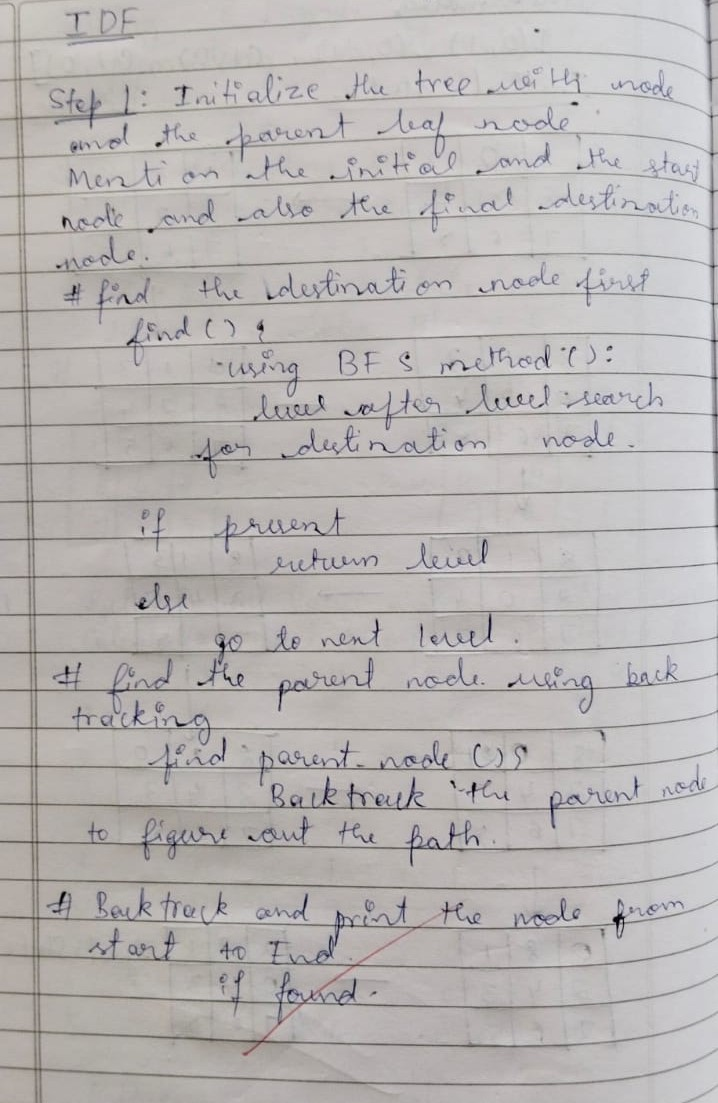 IDF
Step 1: Initialize the tree with node
and the parent leaf node.
Mention the initial and the start
node and also the final destination
node.
# find the destination node first
find () {
using BFS method ():
level after level search
for destination node.
if present
return level
else
go to next level.
# find the parent node using back
tracking
find parent_node () {
Backtrack the parent node
to figure out the path.
# Backtrack and print the node from
start to End.
if found.